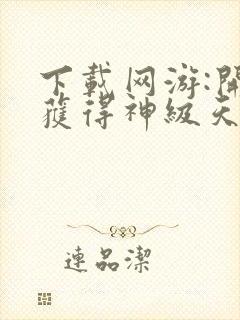 下載网游:開
獲得神級天
連品潔